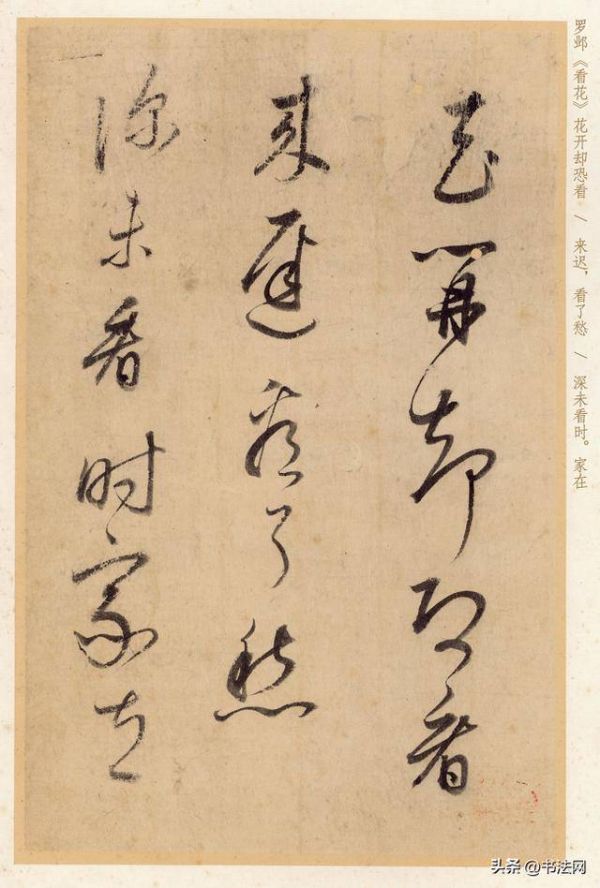 花开却恐看
来迟看了愁
深未看时家在
罗邺《看花》花开却恐看 \ 来迟，看了愁 \ 深未看时。家在
头条 @书法网